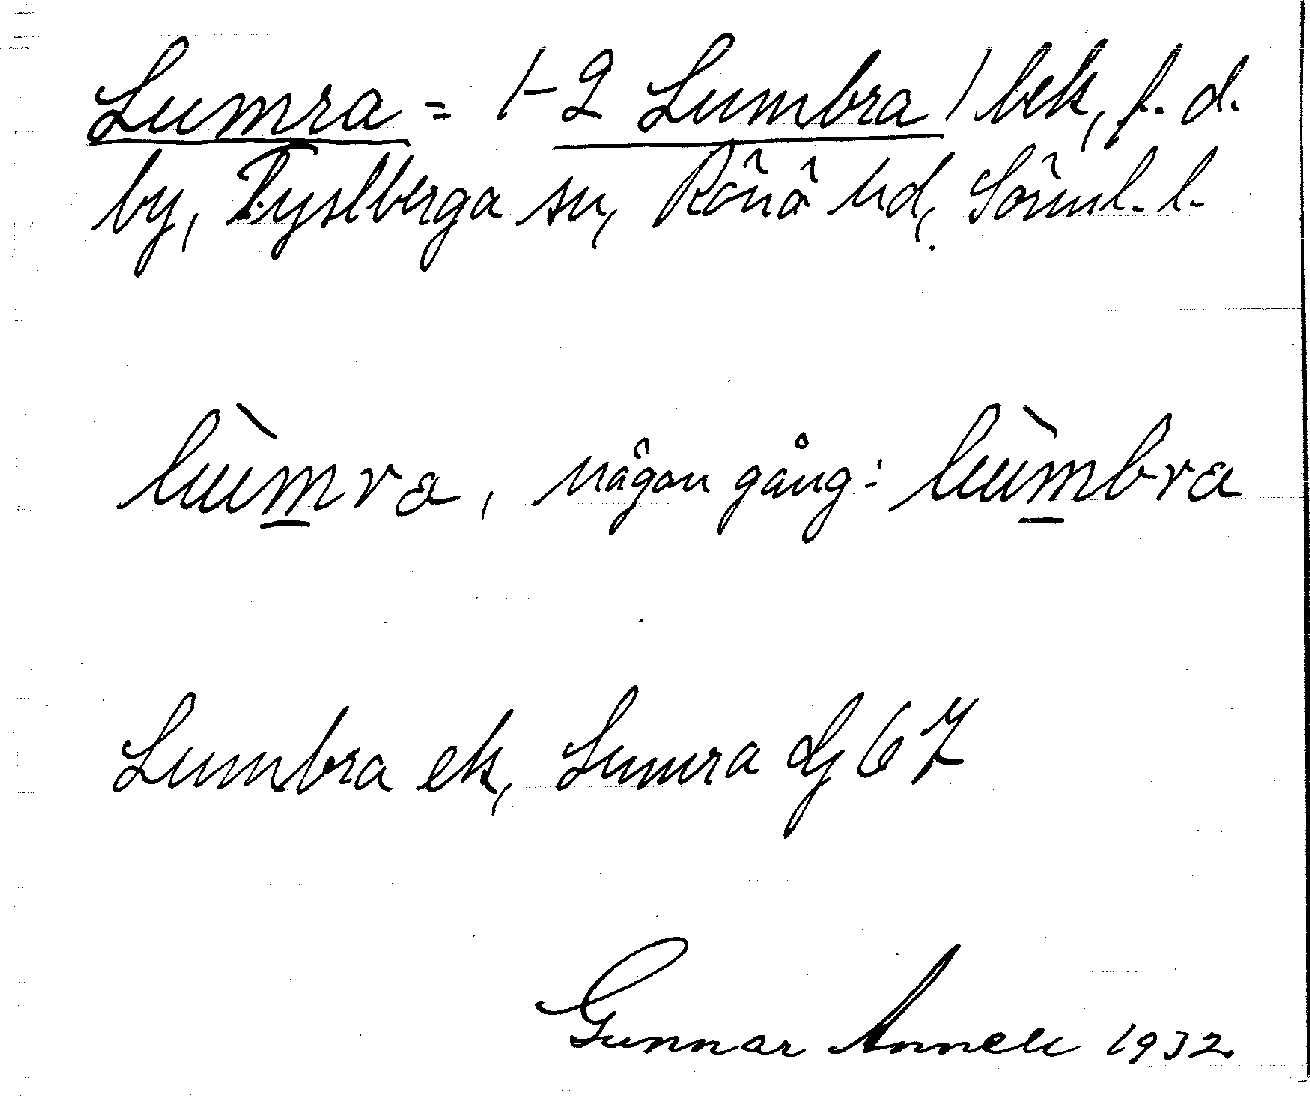 Lumra = 1-2 Lumbra / bek, f. d.
by, Tystberga sn, Rönö hd, Sörml. l.
lùmra, någon gång: lùmbra
Lumbra ek, Lumra Gj 67
Gunnar Annell 1932